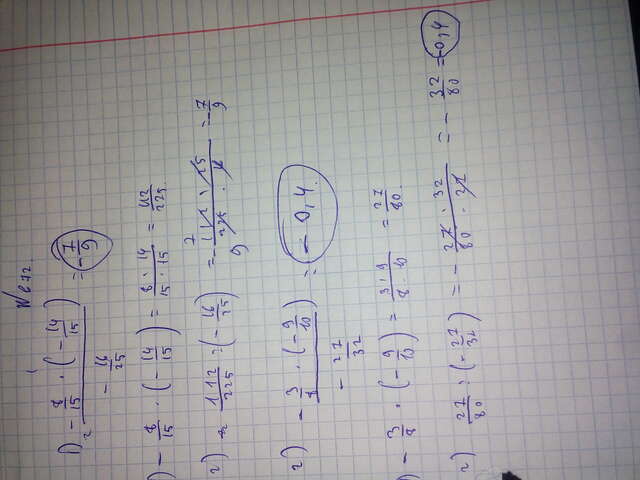 № 672.
1) (- 8/15 · (- 14/15)) / (- 16/25) = - 7/9
1) - 8/15 · (- 14/15) = 8 · 14 / 15 · 15 = 112/225.
2) 112/225 : (- 16/25) = - 112 · 25 / 225 · 16 = - 7/9
2) (- 3/8 · (- 9/10)) / (- 27/32) = - 0,4.
1) - 3/8 · (- 9/10) = 3 · 9 / 8 · 10 = 27/80.
2) 27/80 : (- 27/32) = - 27 · 32 / 80 · 27 = - 32/80 = -0,4